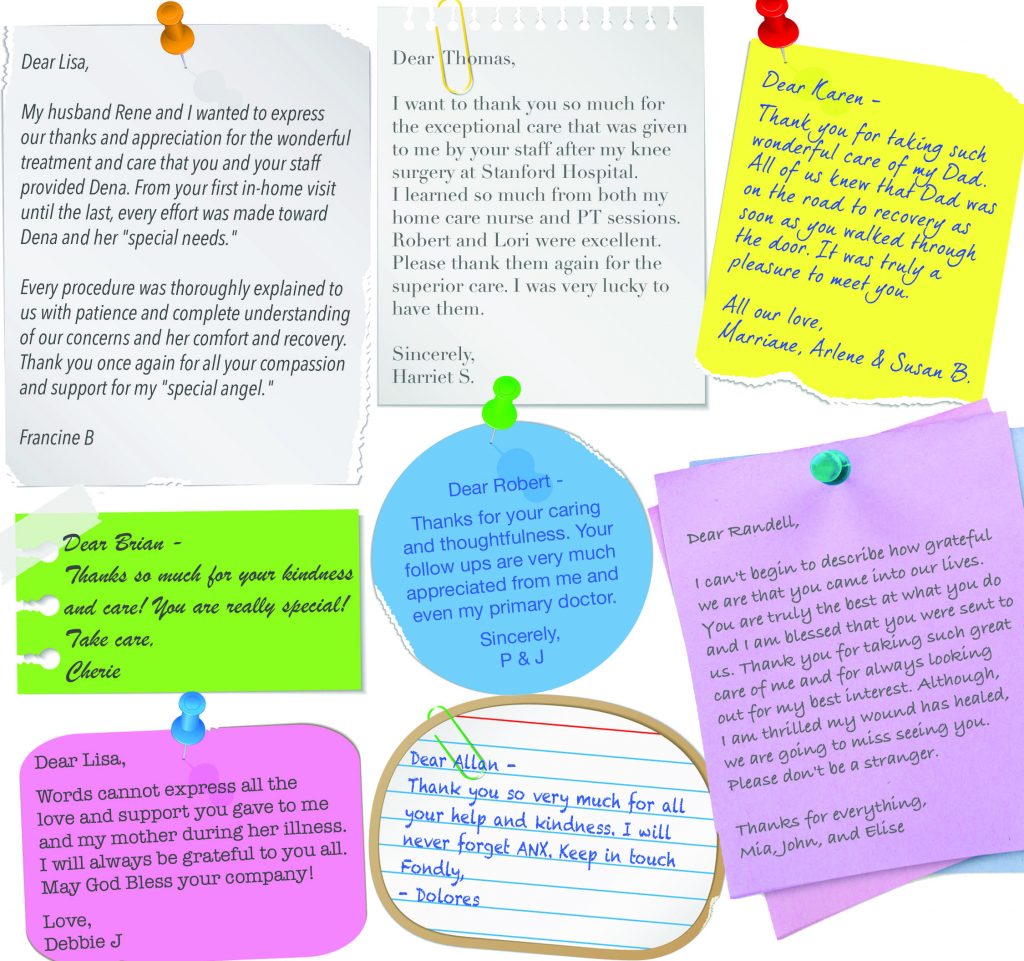 Dear Lisa,
My husband Rene and I wanted to express
our thanks and appreciation for the wonderful
treatment and care that you and your staff
provided Dena. From your first in-home visit
until the last, every effort was made toward
Dena and her "special needs."
Every procedure was thoroughly explained to
us with patience and complete understanding
of our concerns and her comfort and recovery.
Thank you once again for all your compassion
and support for my "special angel."
Francine B
Dear Thomas,
I want to thank you so much for
the exceptional care that was given
to me by your staff after my knee
surgery at Stanford Hospital.
I learned so much from both my
home care nurse and PT sessions.
Robert and Lori were excellent.
Please thank them again for the
superior care. I was very lucky to
have them.
Sincerely,
Harriet S.
Dear Karen -
Thank you for taking such
wonderful care of my Dad.
All of us knew that Dad was
on the road to recovery as
soon as you walked through
the door. It was truly a
pleasure to meet you.
All our love,
Marriane, Arlene & Susan B.
Dear Brian -
Thanks so much for your kindness
and care! You are really special!
Take care,
Cherie
Dear Robert -
Thanks for your caring
and thoughtfulness. Your
follow ups are very much
appreciated from me and
even my primary doctor.
Sincerely,
P & J
Dear Randell,
I can't begin to describe how grateful
we are that you came into our lives.
You are truly the best at what you do
and I am blessed that you were sent to
us. Thank you for taking such great
care of me and for always looking
out for my best interest. Although,
I am thrilled my wound has healed,
we are going to miss seeing you.
Please don't be a stranger.
Thanks for everything,
Mia, John, and Elise
Dear Lisa,
Words cannot express all the
love and support you gave to me
and my mother during her illness.
I will always be grateful to you all.
May God Bless your company!
Love,
Debbie J
Dear Allan -
Thank you so very much for all
your help and kindness. I will
never forget ANX. Keep in touch
Fondly,
- Dolores